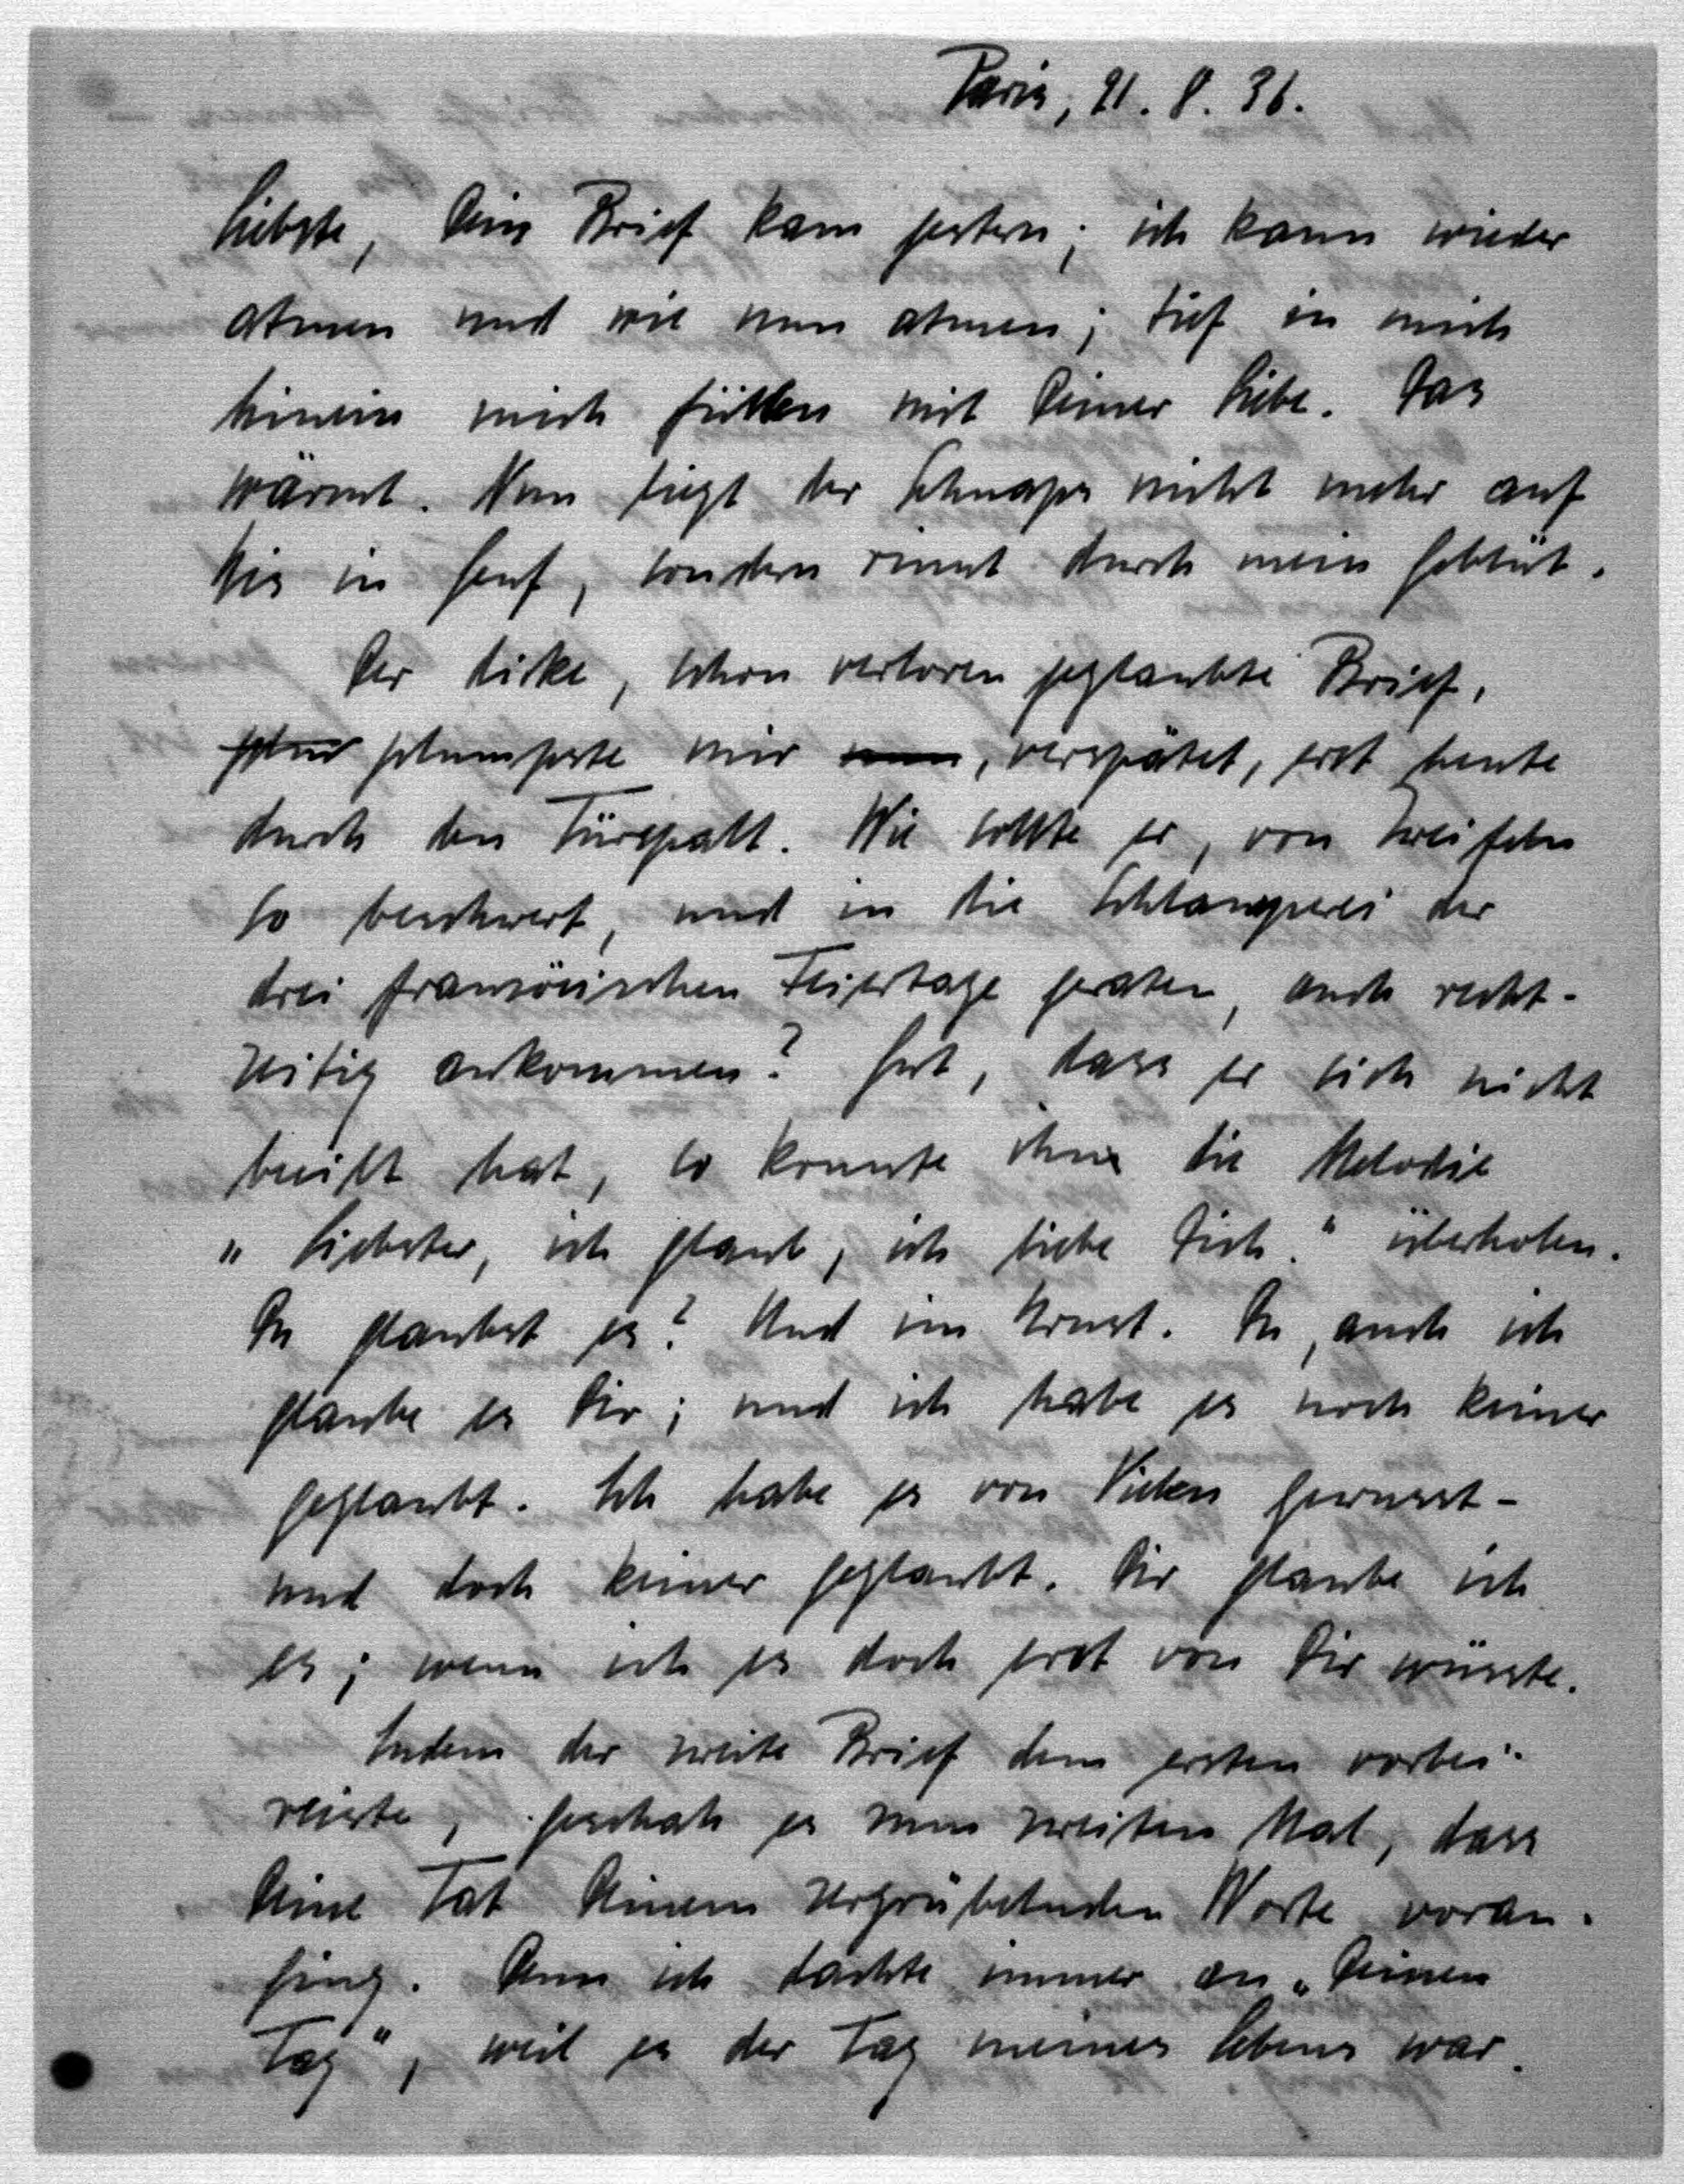 Paris, 21. 8. 36.
Liebste, Dein Brief kam gestern; ich kann wieder
atmen und wie nun atmen; tief in mich
hinein mich füllen mit Deiner Liebe. Das
wärmt. Nun liegt der Schnaps nicht mehr auf
Eis in Genf, sondern rinnt durch mein Geblüt.
Der dicke, schon verloren geglaubte Brief,
plumpste mir , verspätet, erst heute
durch den Türspalt. Wie sollte er, von Zweifeln
so beschwert, und in die Schlamperei der
drei französischen Feiertage geraten, auch recht-
zeitig ankommen? Gut, dass er sich nicht
beeilt hat, so konnte ihn die Melodie
„Liebster, ich glaub, ich liebe Dich." überholen.
Du glaubst es? Und im Ernst. Du, auch ich
glaube es Dir; und ich habe es noch keiner
geglaubt. Ich habe es von Vielen gewusst-
und doch keiner geglaubt. Dir glaube ich
es; wenn ich es doch erst von Dir wüsste.
Indem der zweite Brief dem ersten vorbei-
reiste, geschah es zum zweiten Mal, dass
Deine Tat Deinem zergrübelnden Worte voran-
ging. Denn ich dachte immer an „Deinen
Tag", weil es der Tag meines Lebens war.